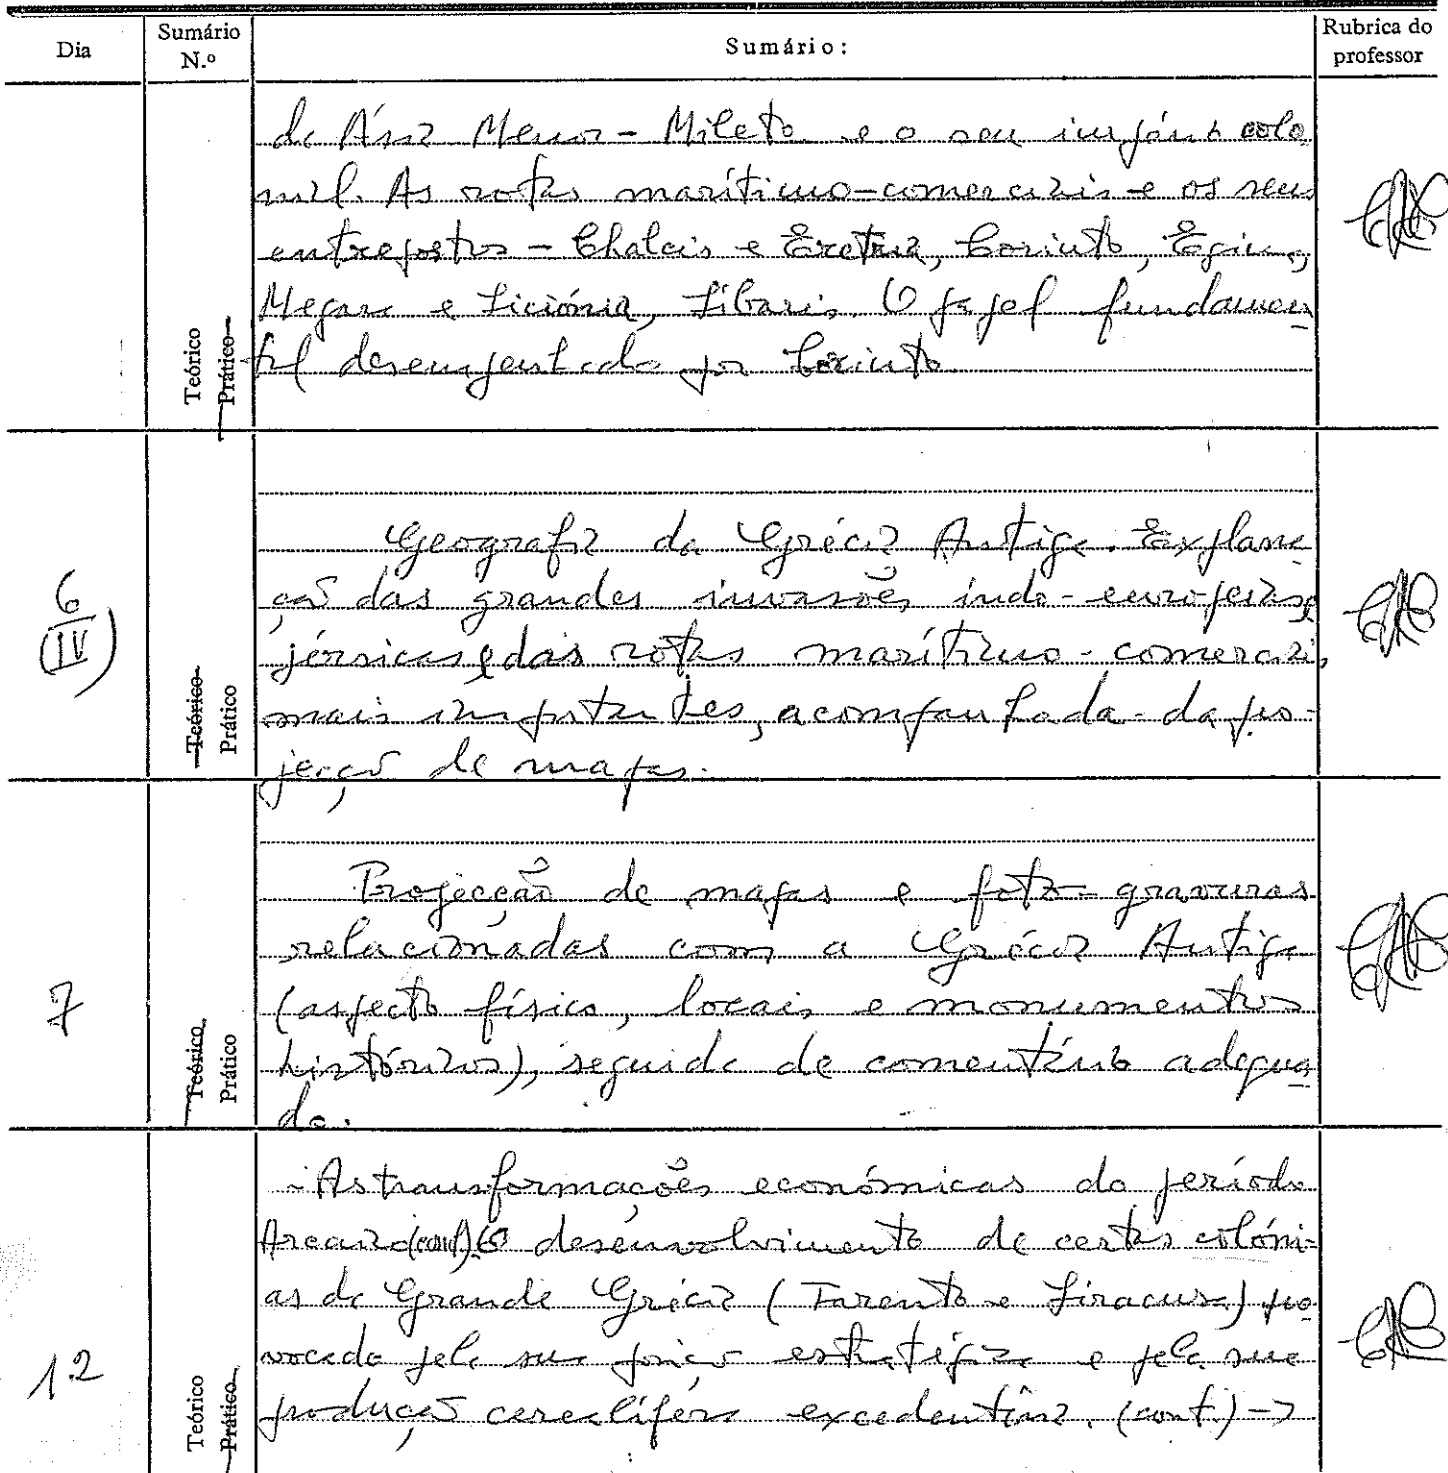 Dia Sumário N.º Sumário: Rubrica do professor
da Ásia Menor - Mileto e o seu império colo
nial. As rotas marítimo-comerciais e os seus
entrepostos - Chalcis e Eretria, Corinto, Egina,
Megara e Siciónia, Síbaris. O papel fundamen
tal desempenhado por Corinto
Teórico
Prático
Geografia da Grécia Antiga. Explana
ção das grandes invasões indo-europeias,
e das rotas marítimo-comerciais
mais importantes, acompanhada da pro-
jecção de mapas.
6
(IV)
Teórico
Prático
Projecção de mapas e foto-gravuras
relacionadas com a Grécia Antiga
(aspecto físico, locais e monumentos
históricos), seguida de comentário adequa
do.
7
Teórico
Prático
- As transformações económicas do período
Arcaico (cont.) O desenvolvimento de certas colóni-
as da Grande Grécia (Tarento e Siracusa) pro
vocado pela sua posição estratégica e pela sua
produção cerealífera excedentária. (cont.) →
12
Teórico
Prático